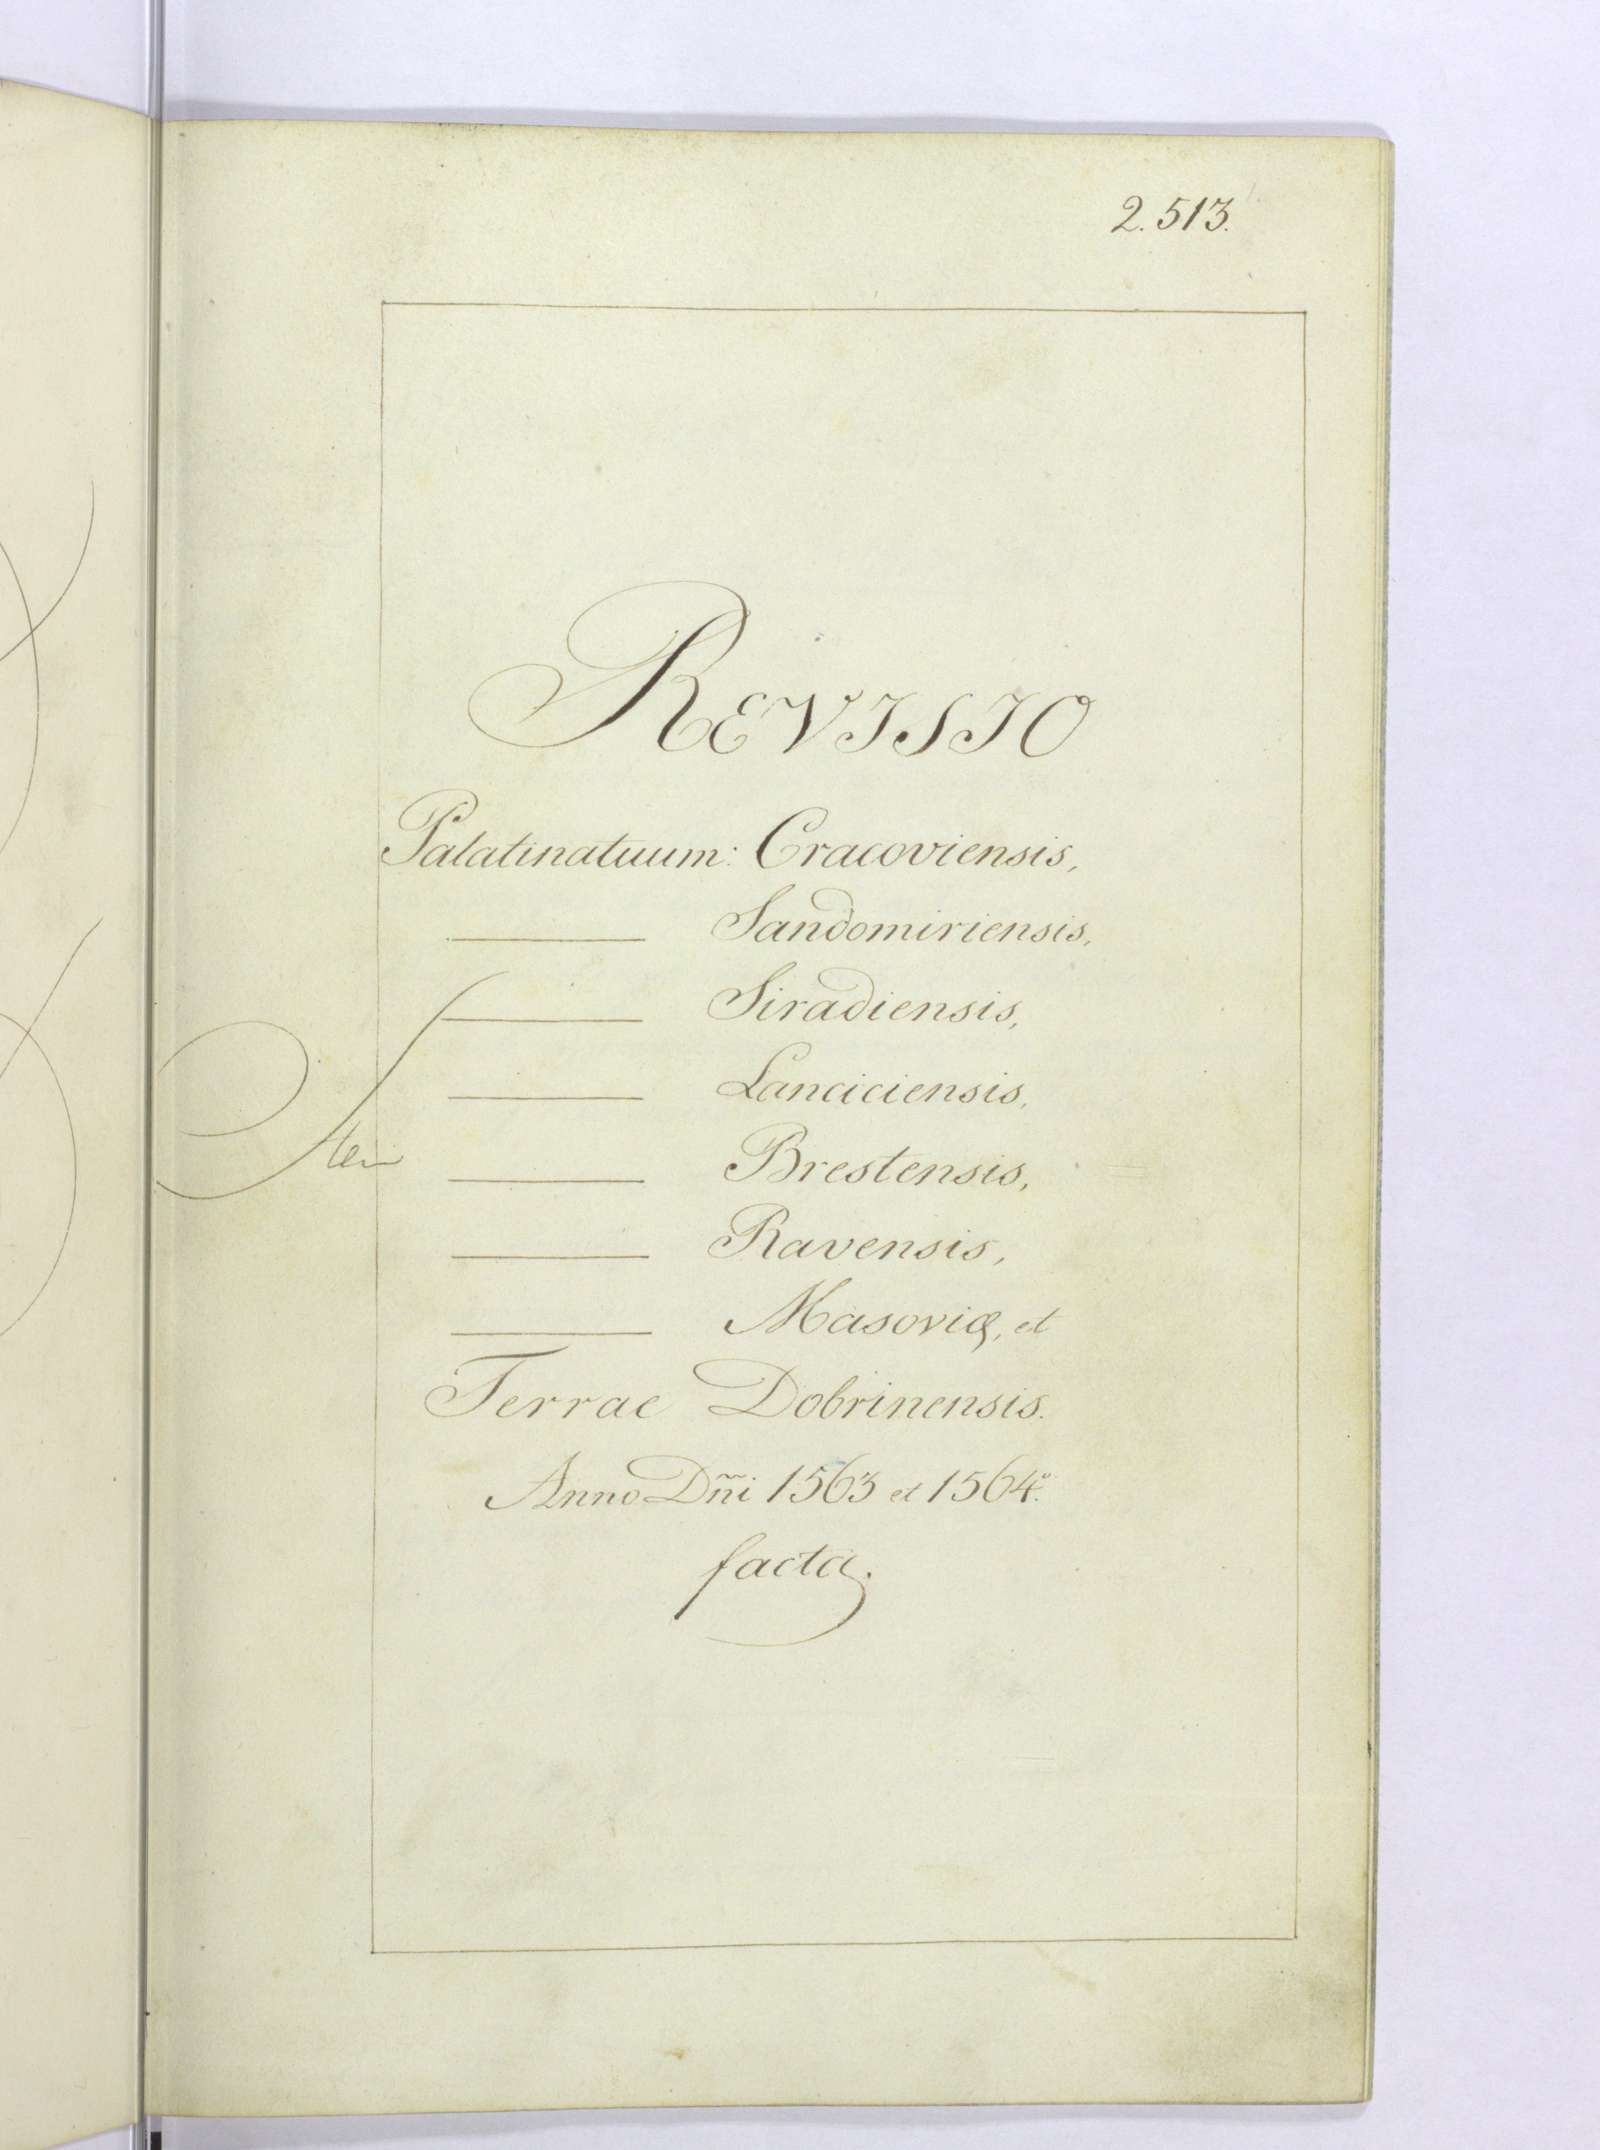 2.513.
REVISIO
Palatinatuum: Cracoviensis,
——— Sandomiriensis,
——— Siradiensis,
——— Lanciciensis,
——— Brestensis,
——— Ravensis,
——— Masoviæ, et
Terrae Dobrinensis.
Anno Dñi 1563 et 1564.
facta.